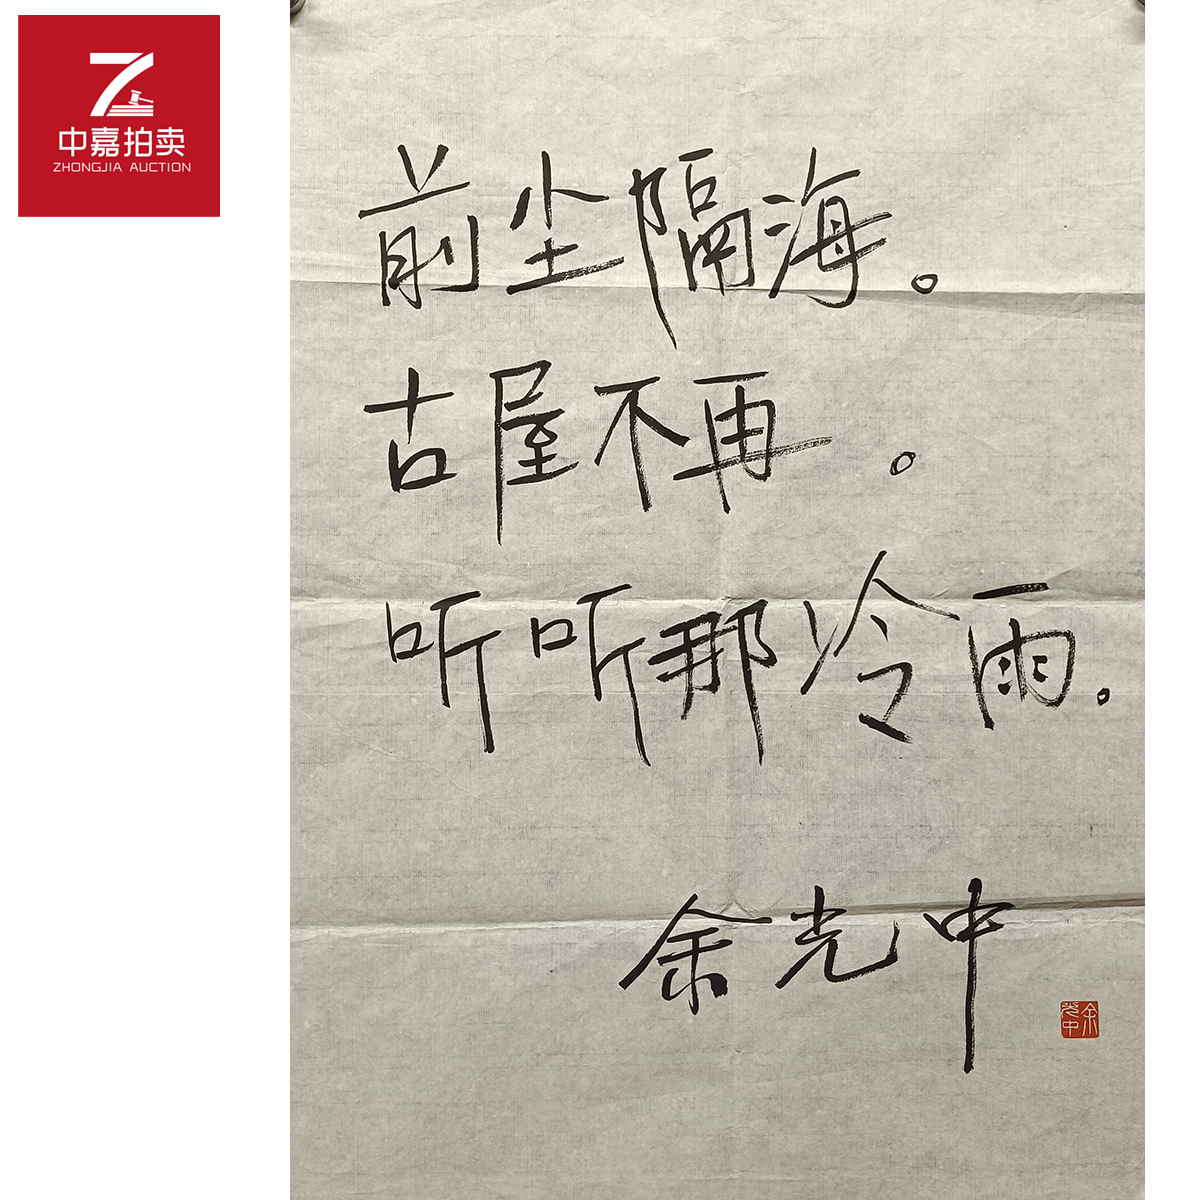 中嘉拍卖
ZHONGJIA AUCTION
前尘隔海。
古屋不再。
听听那冷雨。
余光中
余光中